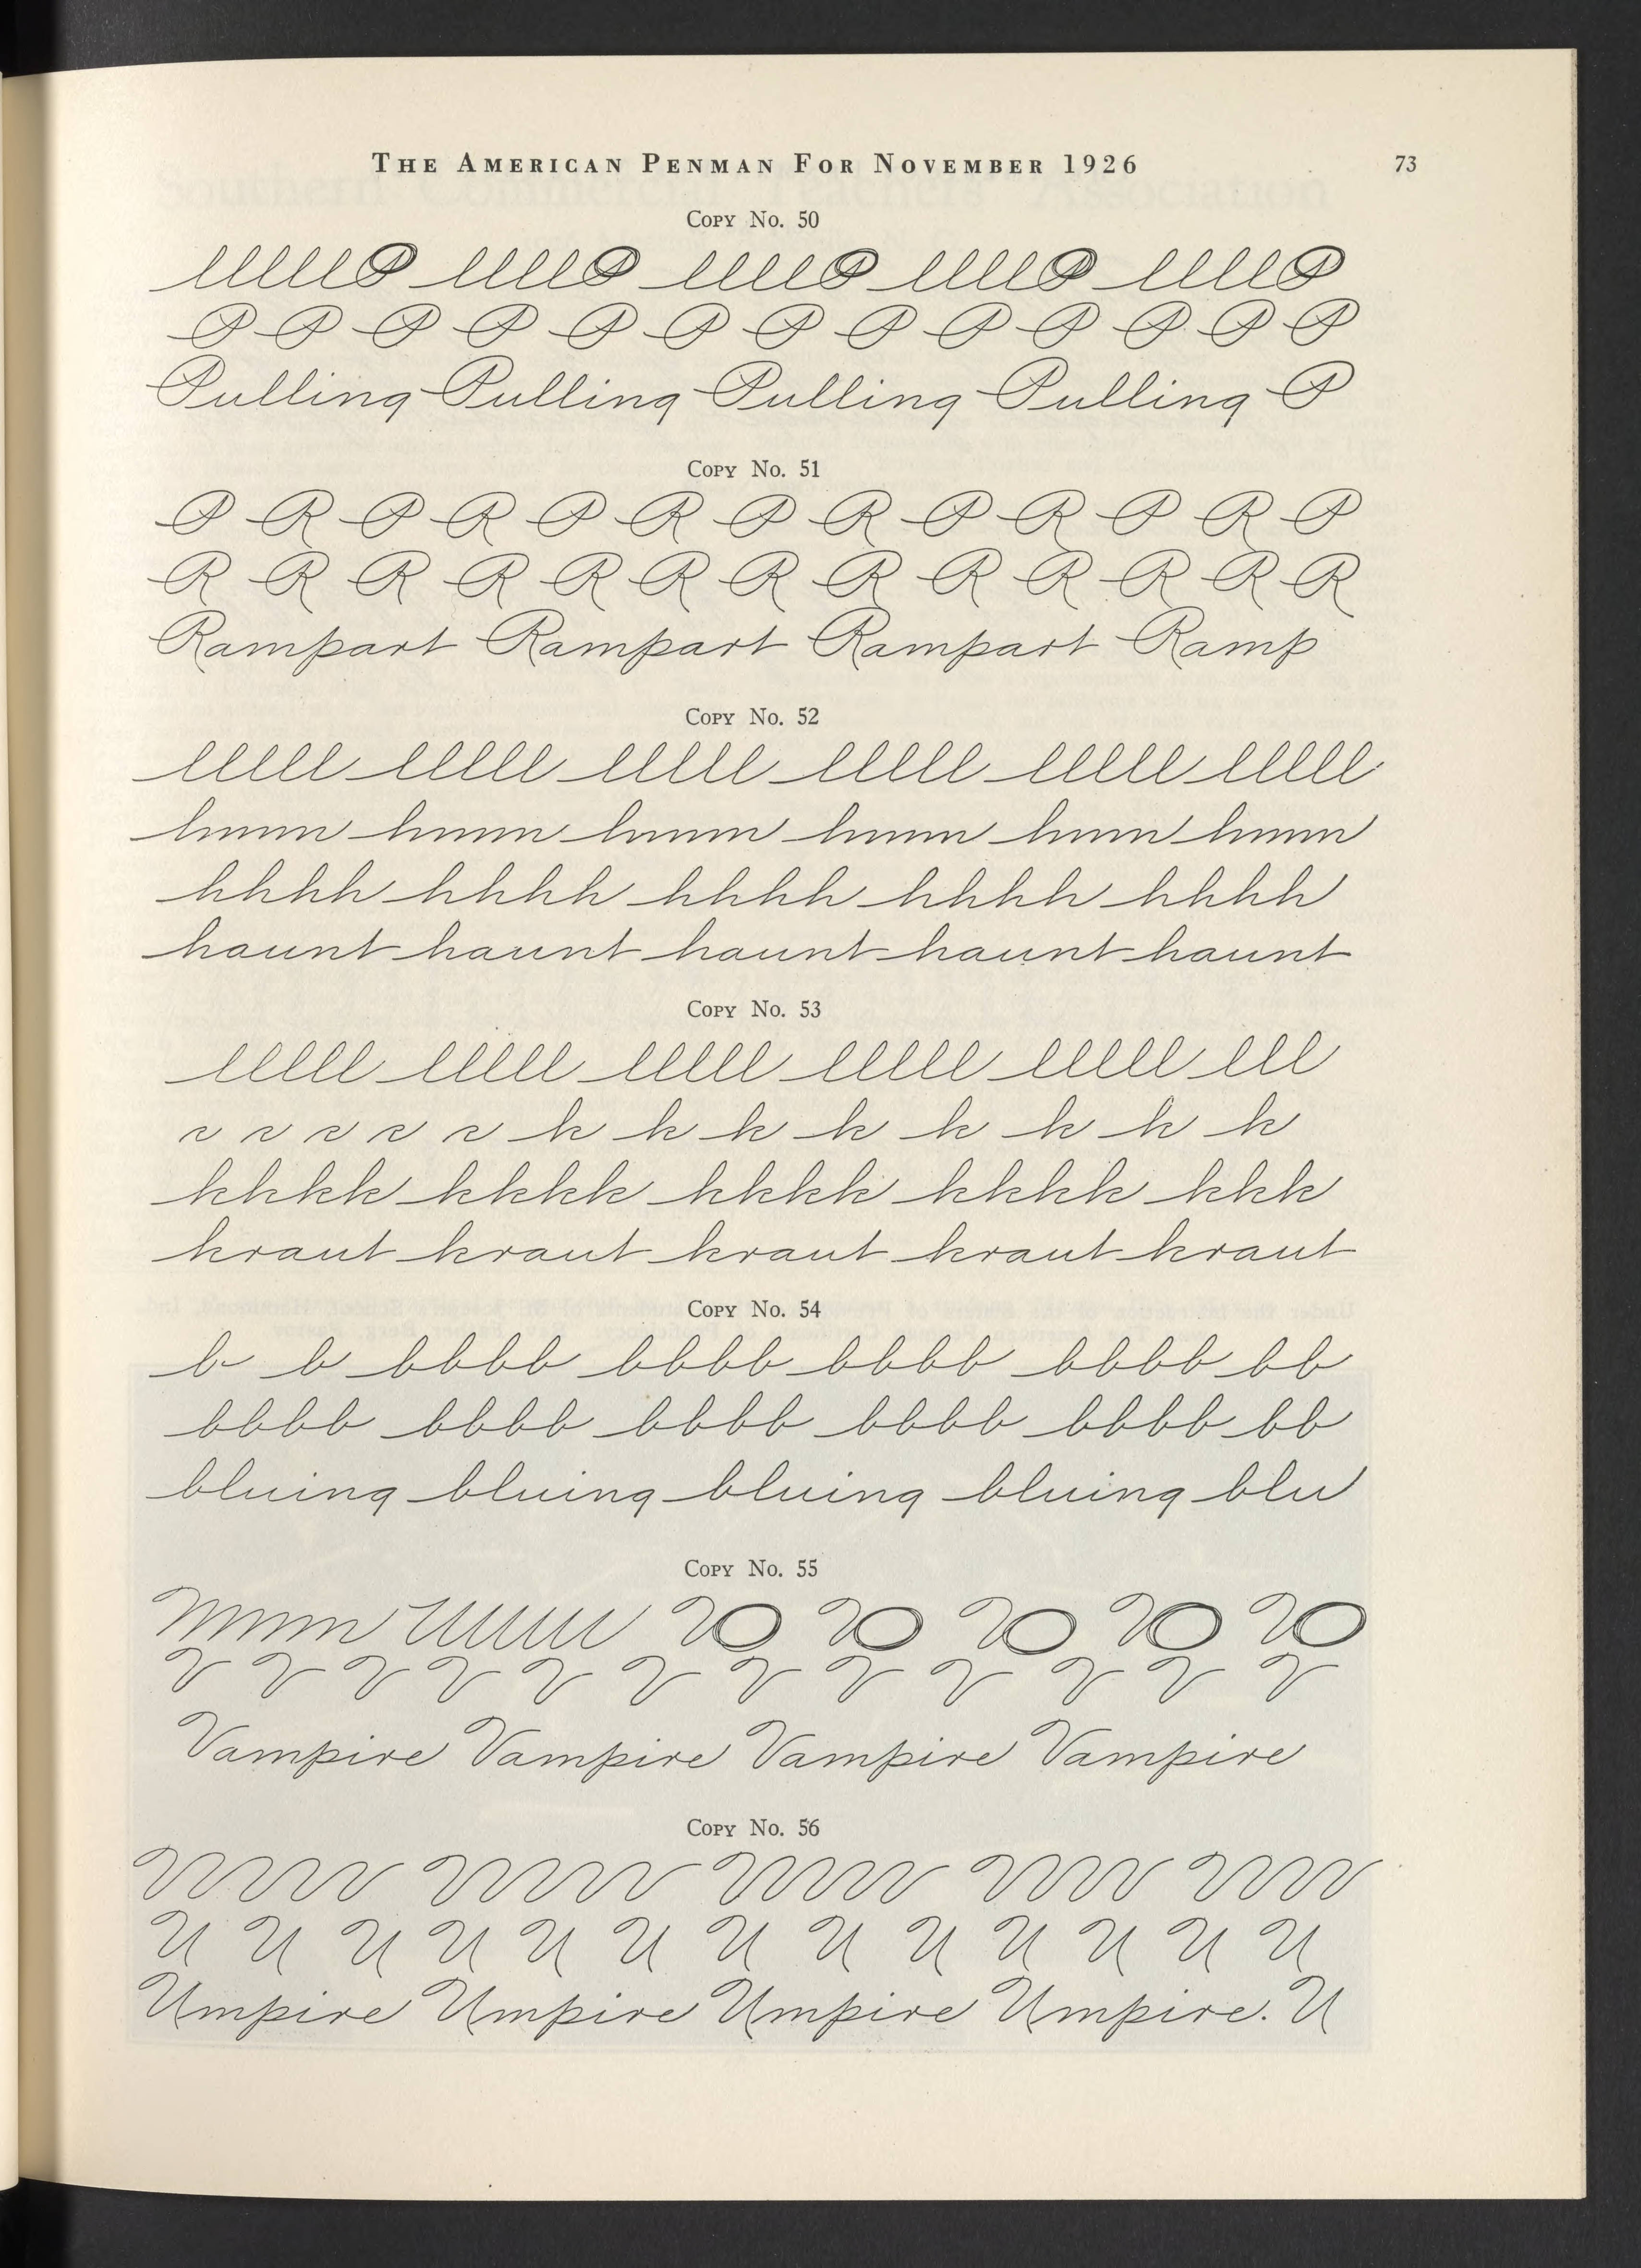 THE AMERICAN PENMAN FOR NOVEMBER 1926 73
COPY No. 50
lllll P llll P llll P llll P llll P
P P P P P P P P P P P P P
Pulling Pulling Pulling Pulling P
COPY No. 51
P R P R P R P R P R P R P
R R R R R R R R R R R R R
Rampart Rampart Rampart Ramp
COPY No. 52
lllll lllll lllll lllll lllll lllll
hhhh hhhh hhhh hhhh hhhh
haunt haunt haunt haunt haunt
COPY No. 53
lllll lllll lllll lllll lllll lll
k k k k k k k k
kkkk kkkk kkkk kkkk kkk
kraut kraut kraut kraut kraut
COPY No. 54
b b bbbb bbbb bbbb bbbb bb
bbbb bbbb bbbb bbbb bbbb bb
bluing bluing bluing bluing blu
COPY No. 55
V V V V V V V V V V V V
Vampire Vampire Vampire Vampire
COPY No. 56
U U U U U U U U U U U U U
Umpire Umpire Umpire Umpire. U